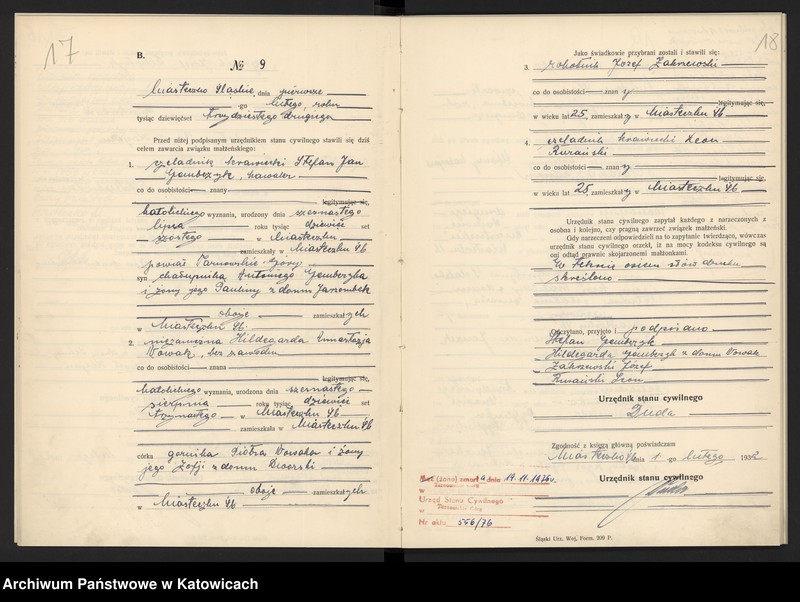 17
B.
№ 9
Miasteczko Śląskie, dnia pierwsze
go lutego, roku
tysiąc dziewięćset trzydziestego drugiego
Przed niżej podpisanym urzędnikiem stanu cywilnego stawili się dziś
celem zawarcia związku małżeńskiego:
1. czeladnik krawiecki Stefan Jan
kawaler
co do osobistości znany
legitymując się,
katolickiego wyznania, urodzony dnia szesnastego
lipca roku tysiąc dziewięć set
szóstego w Miasteczku
zamieszkały w Miasteczku Śl.
powiat Tarnowskie-Góry
syn chałupnika Antoniego
i żony jego Pauliny z domu Jarzombek
oboje zamieszkałych
w Miasteczku Śl.
2. niezamężna Hildegarda Anastazja
Nowak, bez zawodu
co do osobistości znana
legitymując się,
katolickiego wyznania, urodzona dnia szesnastego
sierpnia roku tysiąc dziewięć set
trzynastego w Miasteczku Śl.
zamieszkała w Miasteczku Śl.
córka górnika Piotra Nowaka i żony
jego Zofji z domu Dworski
oboje zamieszkałych
w Miasteczku Śl.
18
Jako świadkowie przybrani zostali i stawili się:
3. robotnik Józef Zakrzewski
co do osobistości znany
legitymując się,
w wieku lat 25, zamieszkały w Miasteczku Śl.
4. czeladnik krawiecki Leon
co do osobistości znany
legitymując się,
w wieku lat 25, zamieszkały w Miasteczku Śl.
Urzędnik stanu cywilnego zapytał każdego z narzeczonych z
osobna i kolejno, czy pragną zawrzeć związek małżeński.
Gdy narzeczeni odpowiedzieli na to zapytanie twierdząco, wówczas
urzędnik stanu cywilnego orzekł, iż na mocy kodeksu cywilnego są
oni odtąd prawnie skojarzonemi małżonkami.
W tekście osiem słów druku
skreślono
Odczytano, przyjęto i podpisano
Stefan
Hildegarda z domu Nowak
Zakrzewski Józef
Leon
Urzędnik stanu cywilnego
Duda
Zgodność z księgą główną poświadczam
Miasteczko Śl. dnia 1 go lutego 1932
Urzędnik stanu cywilnego
Duda
Mąż (żona) zmarła dnia 19.11.1976 r.
w Tarnowskie Góry
Urząd Stanu Cywilnego
Tarnowskie Góry
Nr aktu 556/76
Śląski Urz. Woj. Form. 209 P.
Archiwum Państwowe w Katowicach